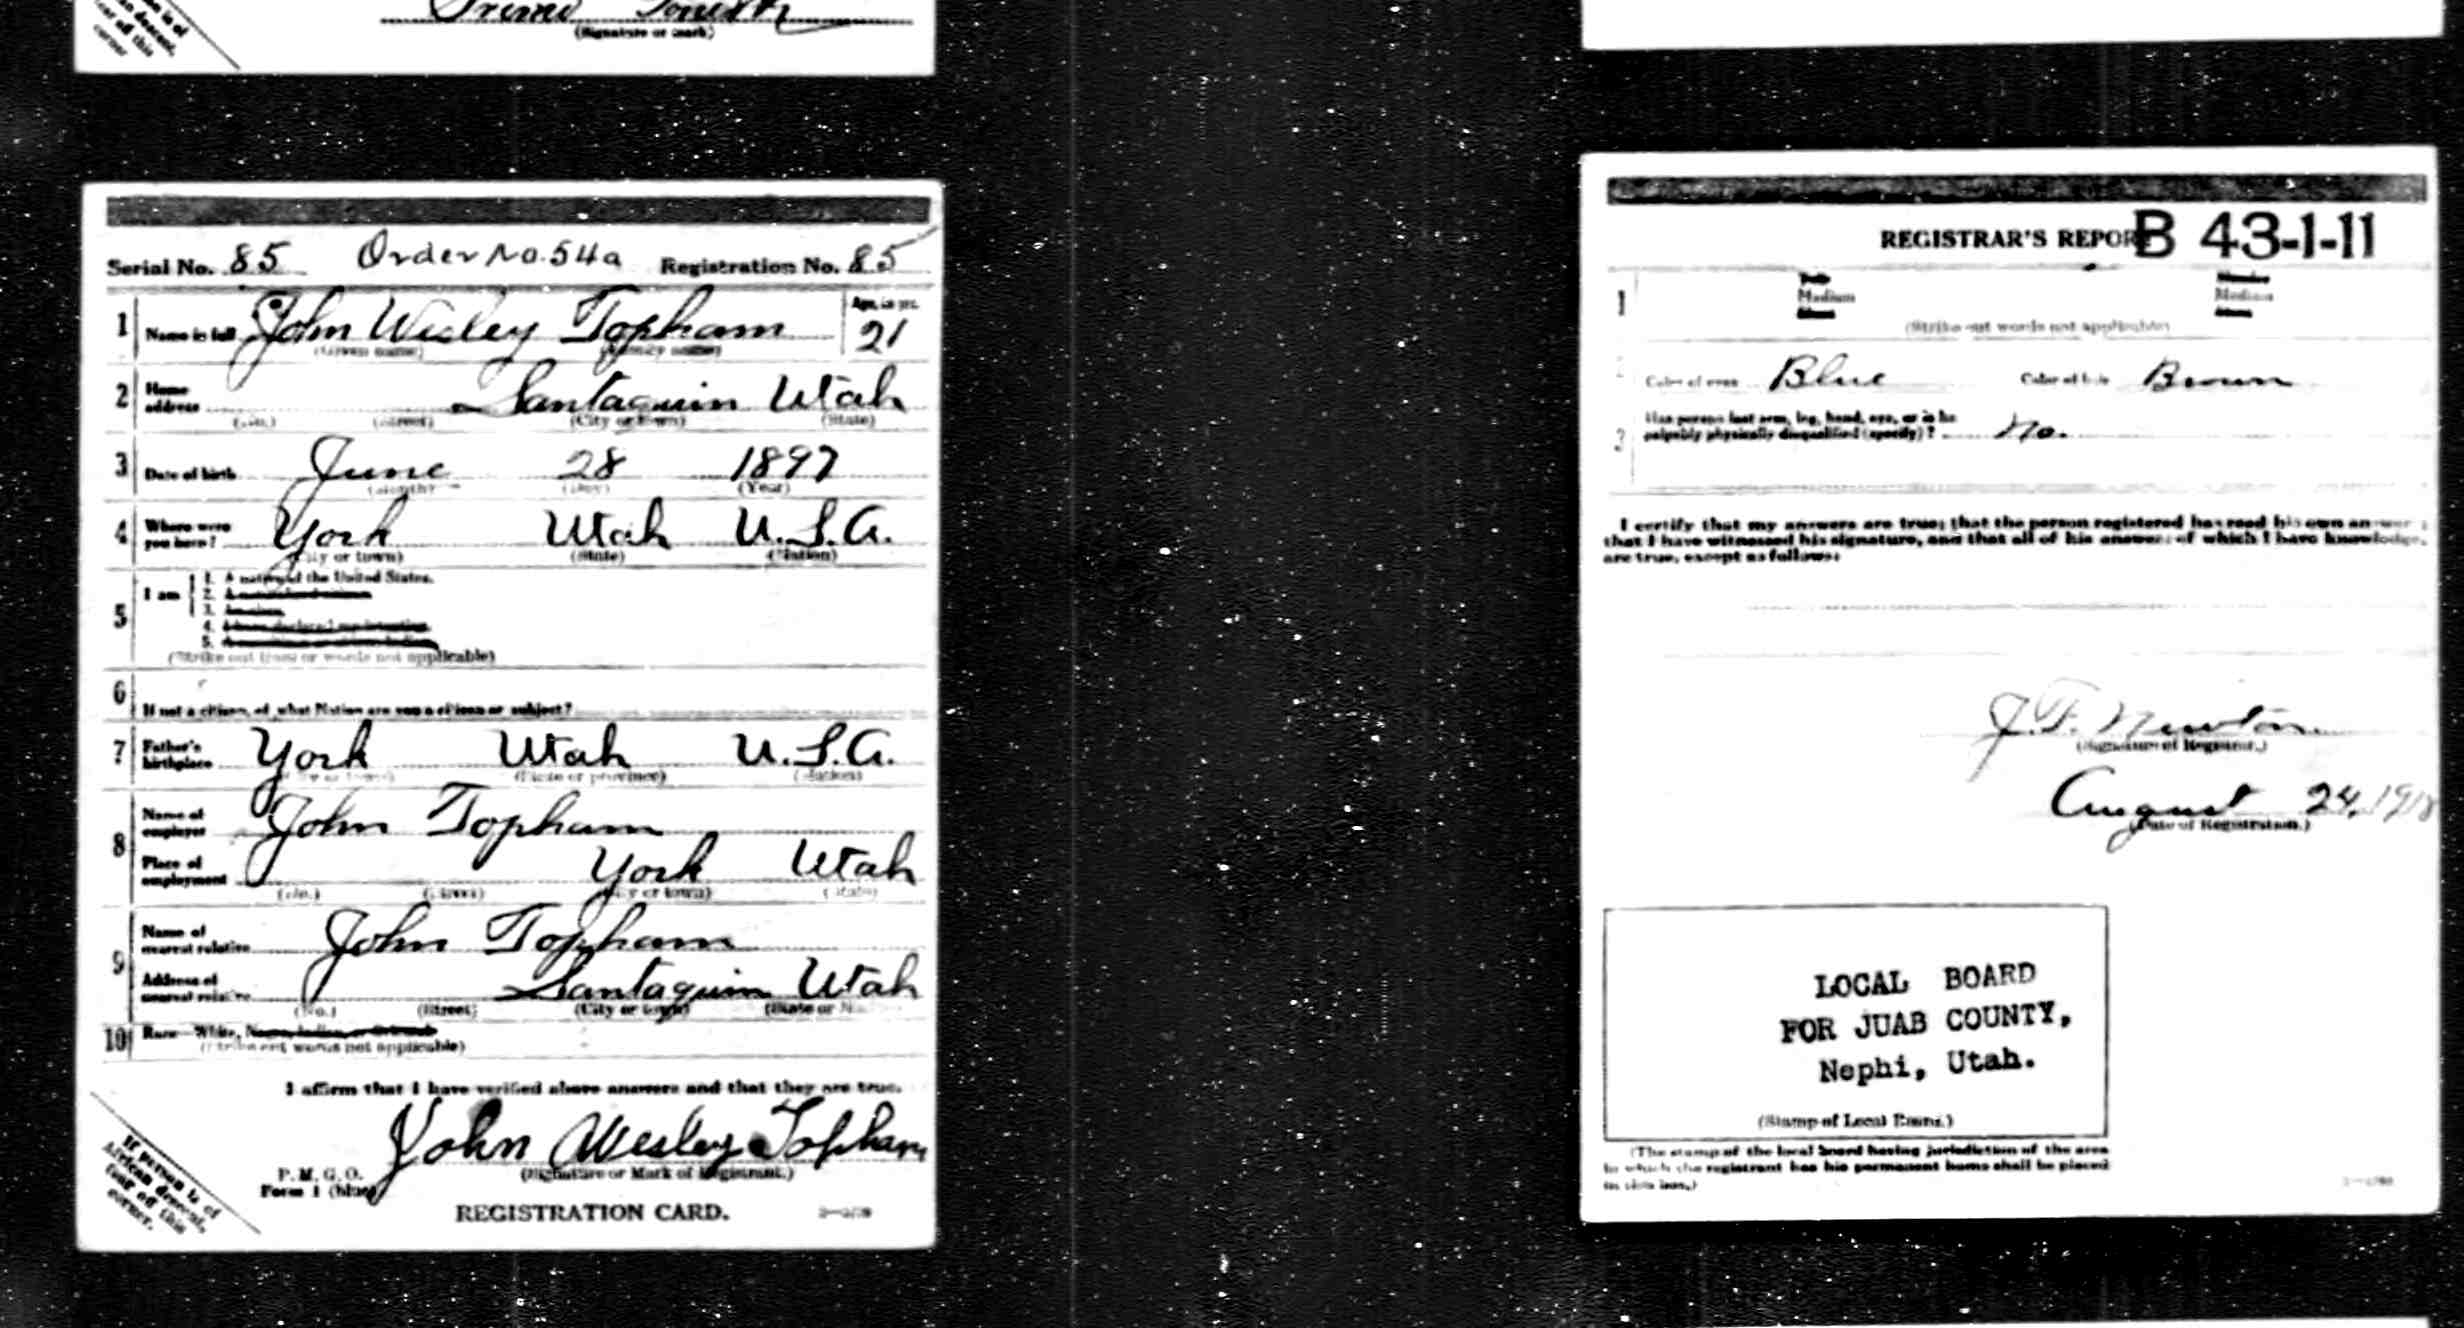 (Signature or mark)
Serial No. 85 Order No. 54a Registration No. 85
1 Name in full John Wesley Topham Age, in yrs. 21
(Given name) (Family name)
2 Home address Santaquin Utah
(No.) (Street) (City or town) (State)
3 Date of birth June 28 1897
(Month) (Day) (Year)
4 Where were you born? York Utah U.S.A.
(City or town) (State) (Nation)
5 I am 1. A native of the United States.
2.
3.
4. I have declared my intention
5.
(Strike out lines or words not applicable)
6 If not a citizen, of what Nation are you a citizen or subject?
7 Father's birthplace York Utah U.S.A.
(City or town) (State or province) (Nation)
8 Name of employer John Topham
Place of employment York Utah
(No.) (Street) (City or town) (State)
9 Name of nearest relative John Topham
Address of nearest relative Santaquin Utah
(No.) (Street) (City or town) (State or
10 Race—White, Negro, Indian, or Oriental
(Strike out words not applicable)
I affirm that I have verified above answers and that they are true.
John Wesley Topham
P. M. G. O.
Form 1 (blue)
(Signature or Mark of Registrant.)
REGISTRATION CARD.
If person is of
African descent,
cut off this
corner.
REGISTRAR'S REPORT B 43-1-11
1 Medium Medium
(Strike out words not applicable)
Color of eyes Blue Color of hair Brown
2 Has person lost arm, leg, hand, eye, or is he
palpably physically disqualified (specify)? No.
I certify that my answers are true; that the person registered has read his own answers;
that I have witnessed his signature, and that all of his answers of which I have knowledge,
are true, except as follows:
J. T. Newton
(Signature of Registrar.)
August 24, 1918
(Date of Registration.)
LOCAL BOARD
FOR JUAB COUNTY,
Nephi, Utah.
(Stamp of Local Board.)
(The stamp of the local board having jurisdiction of the area
in which the registrant has his permanent home shall be placed
in this box.)